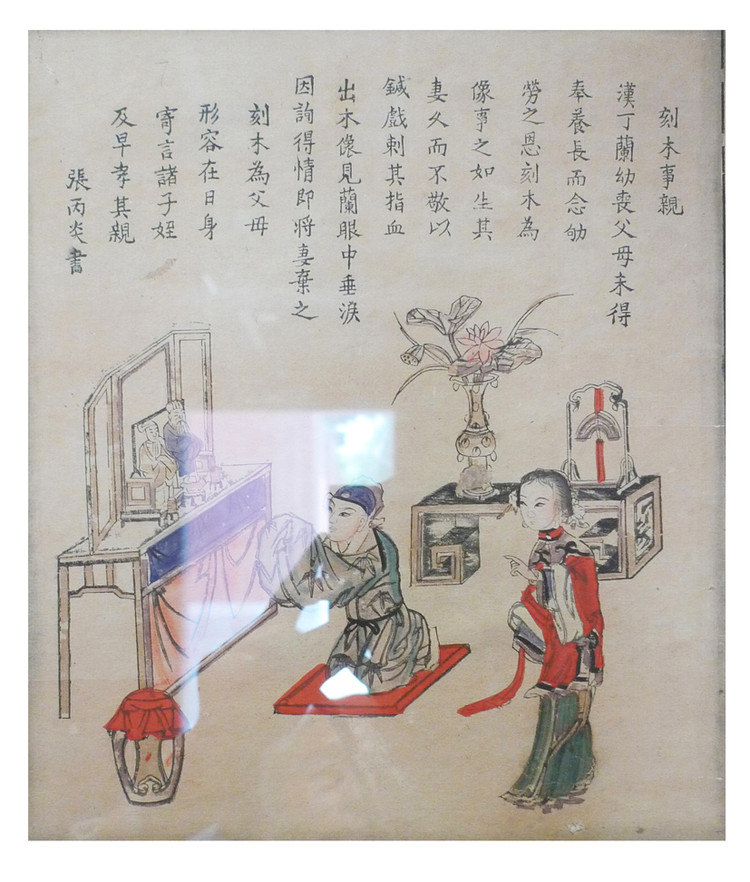 刻木事親
漢丁蘭幼喪父母未得
奉養長而念劬
勞之恩刻木為
像事之如生其
妻久而不敬以
鍼戲刺其指血
出木像見蘭眼中垂淚
因詢得情即將妻棄之
刻木為父母
形容在日身
寄言諸子姪
及早孝其親
張丙炎書